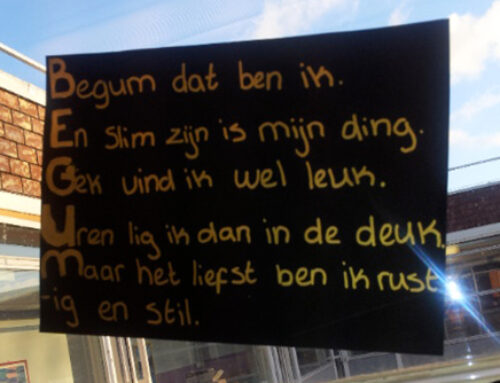 Begum dat ben ik.
En slim zijn is mijn ding.
Gek vind ik wel leuk.
Uren lig ik dan in de deuk.
Maar het liefst ben ik rust
-ig en stil.